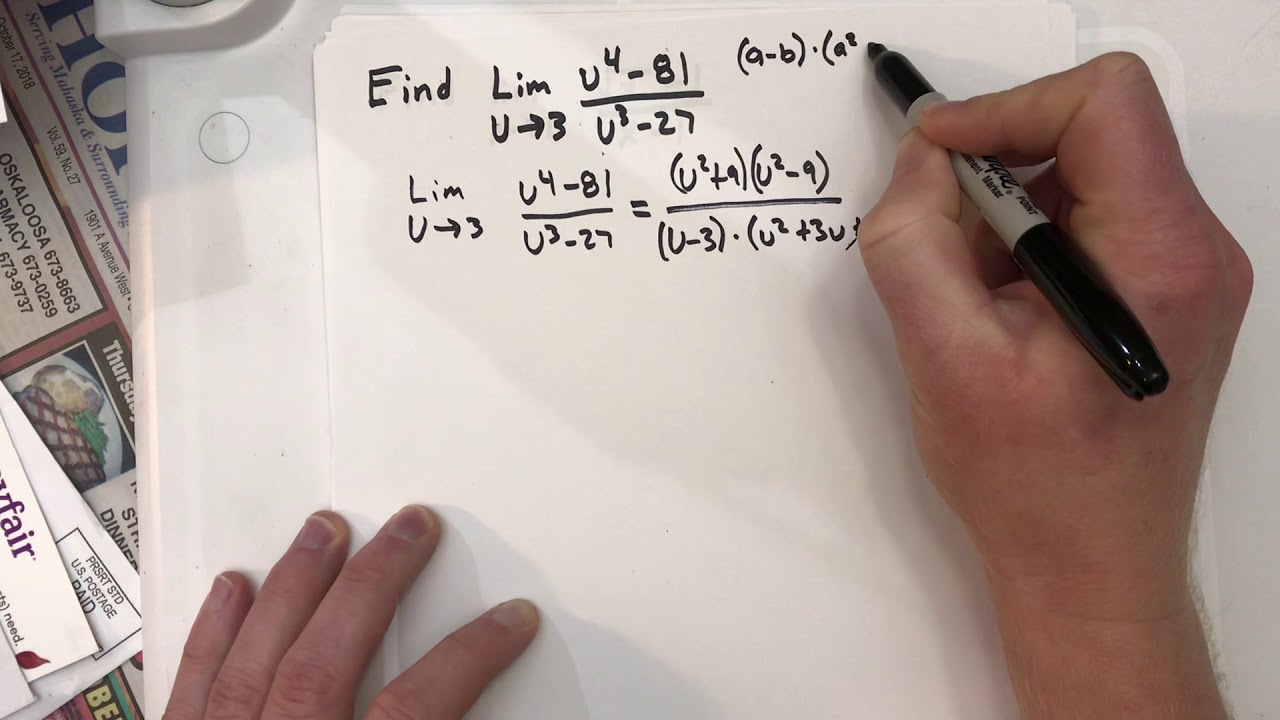 Eind Lim U→3 (U⁴-81)/(U³-27)
(a-b)·(a²
Lim U→3 (U⁴-81)/(U³-27) = (U²+9)(U²-9)/(U-3)·(U²+3U
October 17, 2018
HO
Serving Mahaska & Surrounding
Vol. 59, No. 27
1901 A Avenue West
OSKALOOSA 673-8663
ARMACY 673-0259
673-9737
Thursday
DINNE
yfair
need.
PRSRT STD
U.S. POSTAGE
PAID
BE
POINT